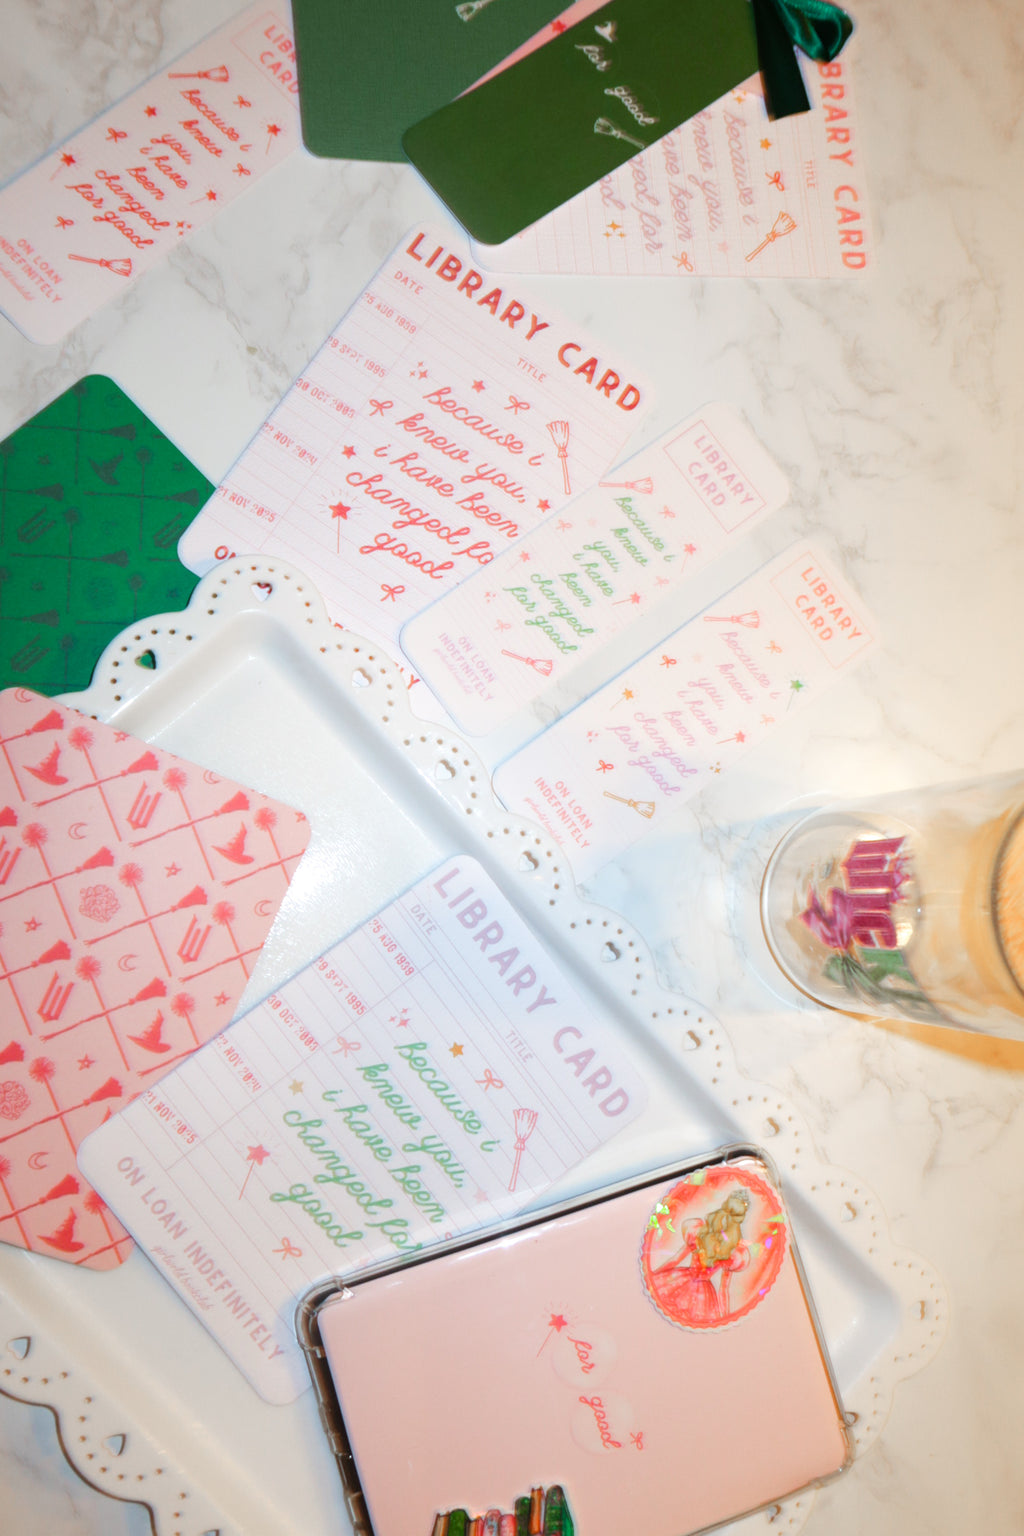 LIBRARY
CARD
because i
knew
you,
i have
been
changed
for good
ON LOAN
INDEFINITELY
for
good
LIBRARY CARD
TITLE
because i
knew you,
have been
for
LIBRARY CARD
DATE
TITLE
25 AUG 1939
29 SEPT 1995
30 OCT 2003
22 NOV 2024
21 NOV 2025
because i
knew you,
i have been
changed fo
good
LIBRARY
CARD
because i
knew
you,
i have
been
changed
for good
ON LOAN
INDEFINITELY
LIBRARY
CARD
because i
knew
you,
i have
been
changed
for good
ON LOAN
INDEFINITELY
LIBRARY CARD
DATE
TITLE
25 AUG 1939
29 SEPT 1995
30 OCT 2003
22 NOV 2024
21 NOV 2025
because i
knew you,
i have been
changed for
good
ON LOAN INDEFINITELY
for
good